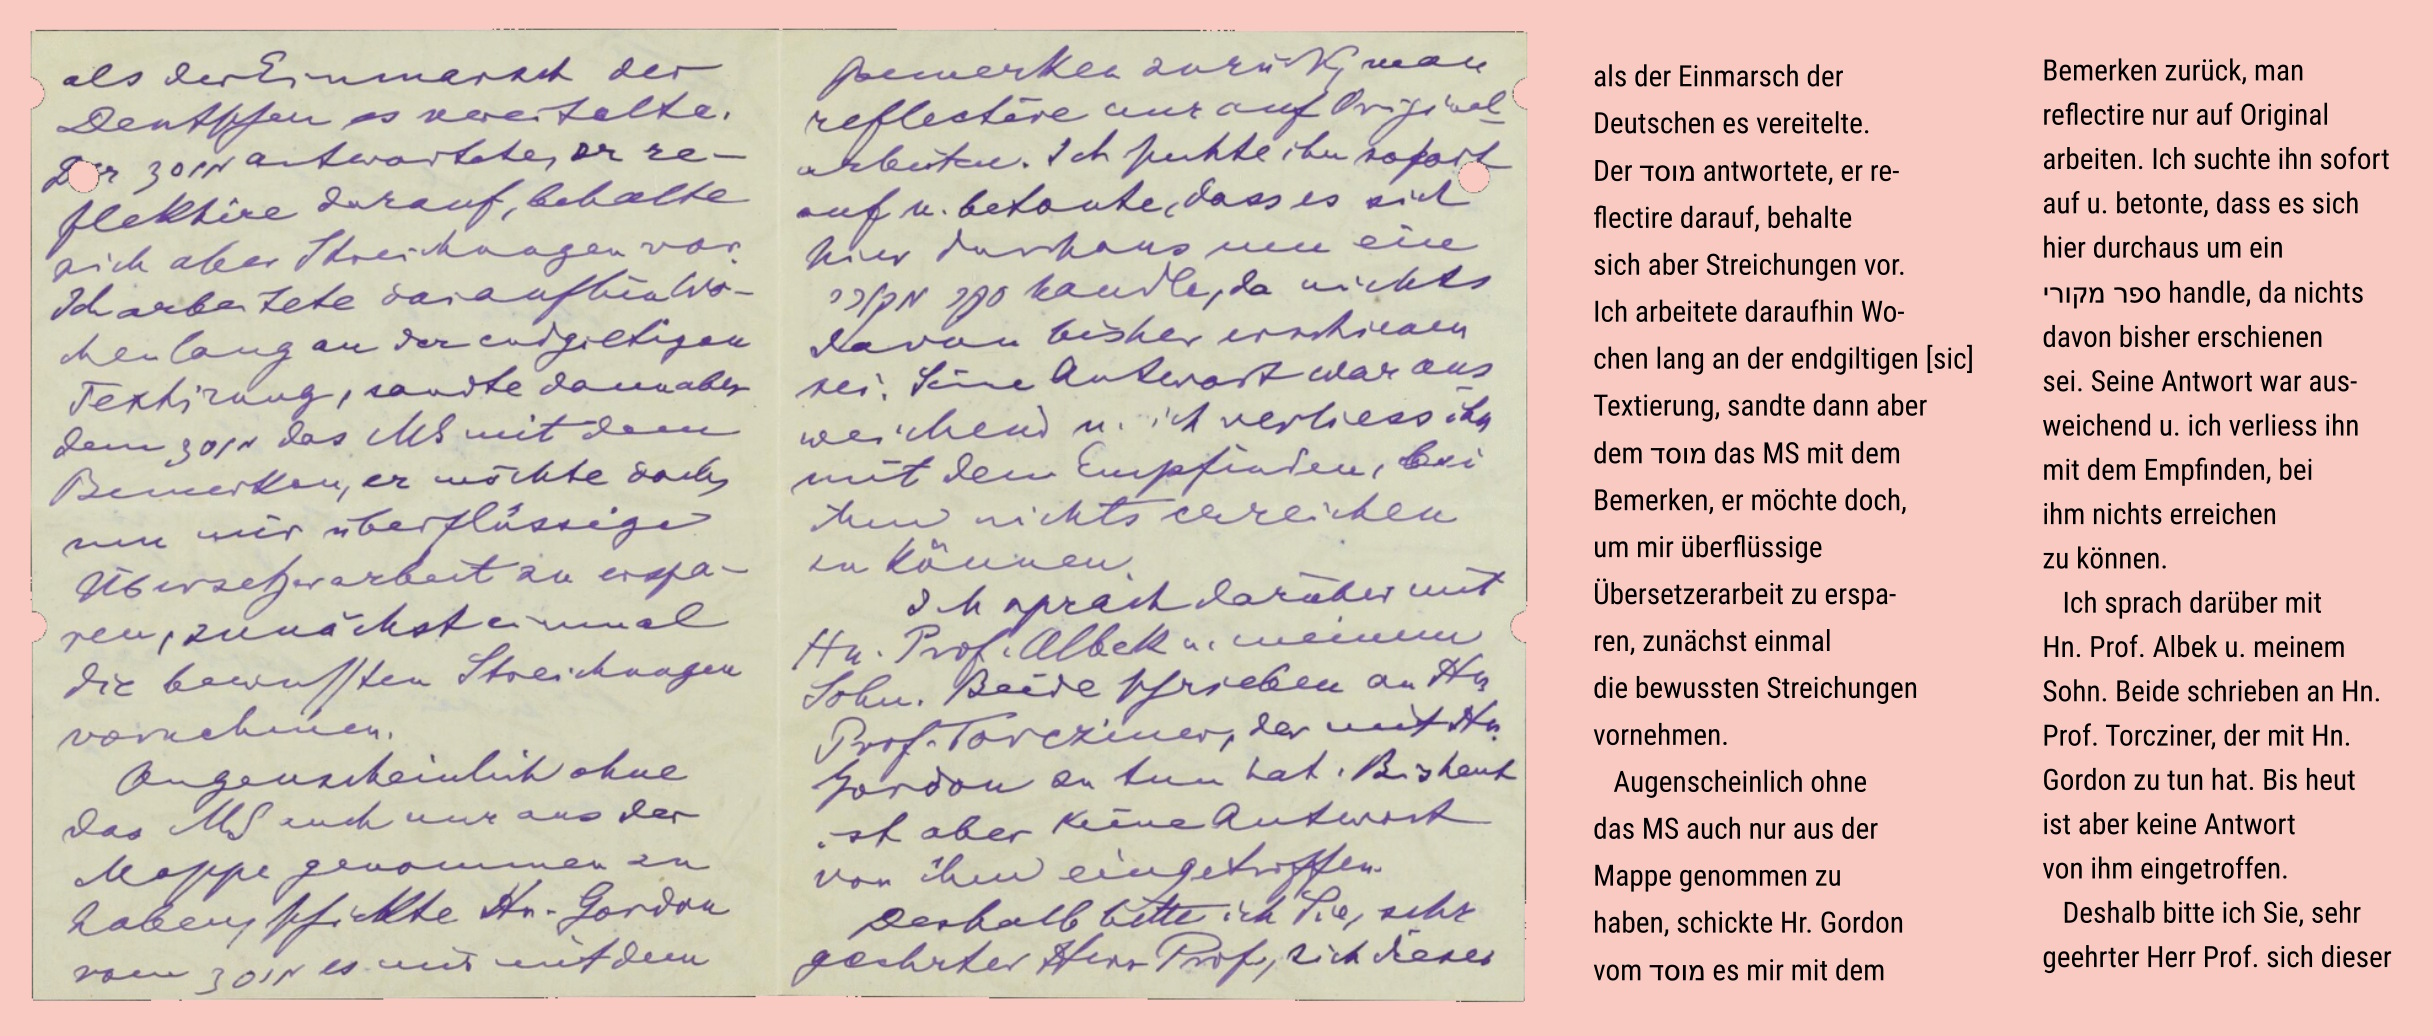 als der Einmarsch der
Deutschen es vereitelte.
Der מוסד antwortete, er re-
flektire darauf, behalte
sich aber Streichungen vor.
Ich arbeitete daraufhin Wo-
chen lang an der endgiltigen
Textirung, sandte dann aber
dem מוסד das MS mit dem
Bemerken, er möchte doch,
um mir überflüssige
Übersetzerarbeit zu erspa-
ren, zunächst einmal
die bewussten Streichungen
vornehmen.
Augenscheinlich ohne
das MS auch nur aus der
Mappe genommen zu
haben, schickte Hr. Gordon
vom מוסד es mir mit dem
Bemerken zurück, man
reflectire nur auf Original-
arbeiten. Ich suchte ihn sofort
auf u. betonte, dass es sich
hier durchaus um ein
ספר מקורי handle, da nichts
davon bisher erschienen
sei. Seine Antwort war aus
weichend u. ich verliess ihn
mit dem Empfinden, bei
ihm nichts erreichen
zu können.
Ich sprach darüber mit
Hn. Prof. Albek u. meinem
Sohn. Beide schrieben an Hn.
Prof. Torcziner, der mit Hn.
Gordon zu tun hat. Bis heut
ist aber keine Antwort
von ihm eingetroffen.
Deshalb bitte ich Sie, sehr
geehrter Herr Prof., sich dieser
als der Einmarsch der
Deutschen es vereitelte.
Der מוסד antwortete, er re-
flectire darauf, behalte
sich aber Streichungen vor.
Ich arbeitete daraufhin Wo-
chen lang an der endgiltigen [sic]
Textierung, sandte dann aber
dem מוסד das MS mit dem
Bemerken, er möchte doch,
um mir überflüssige
Übersetzerarbeit zu erspa-
ren, zunächst einmal
die bewussten Streichungen
vornehmen.
Augenscheinlich ohne
das MS auch nur aus der
Mappe genommen zu
haben, schickte Hr. Gordon
vom מוסד es mir mit dem
Bemerken zurück, man
reflectire nur auf Original
arbeiten. Ich suchte ihn sofort
auf u. betonte, dass es sich
hier durchaus um ein
ספר מקורי handle, da nichts
davon bisher erschienen
sei. Seine Antwort war aus-
weichend u. ich verliess ihn
mit dem Empfinden, bei
ihm nichts erreichen
zu können.
Ich sprach darüber mit
Hn. Prof. Albek u. meinem
Sohn. Beide schrieben an Hn.
Prof. Torcziner, der mit Hn.
Gordon zu tun hat. Bis heut
ist aber keine Antwort
von ihm eingetroffen.
Deshalb bitte ich Sie, sehr
geehrter Herr Prof. sich dieser